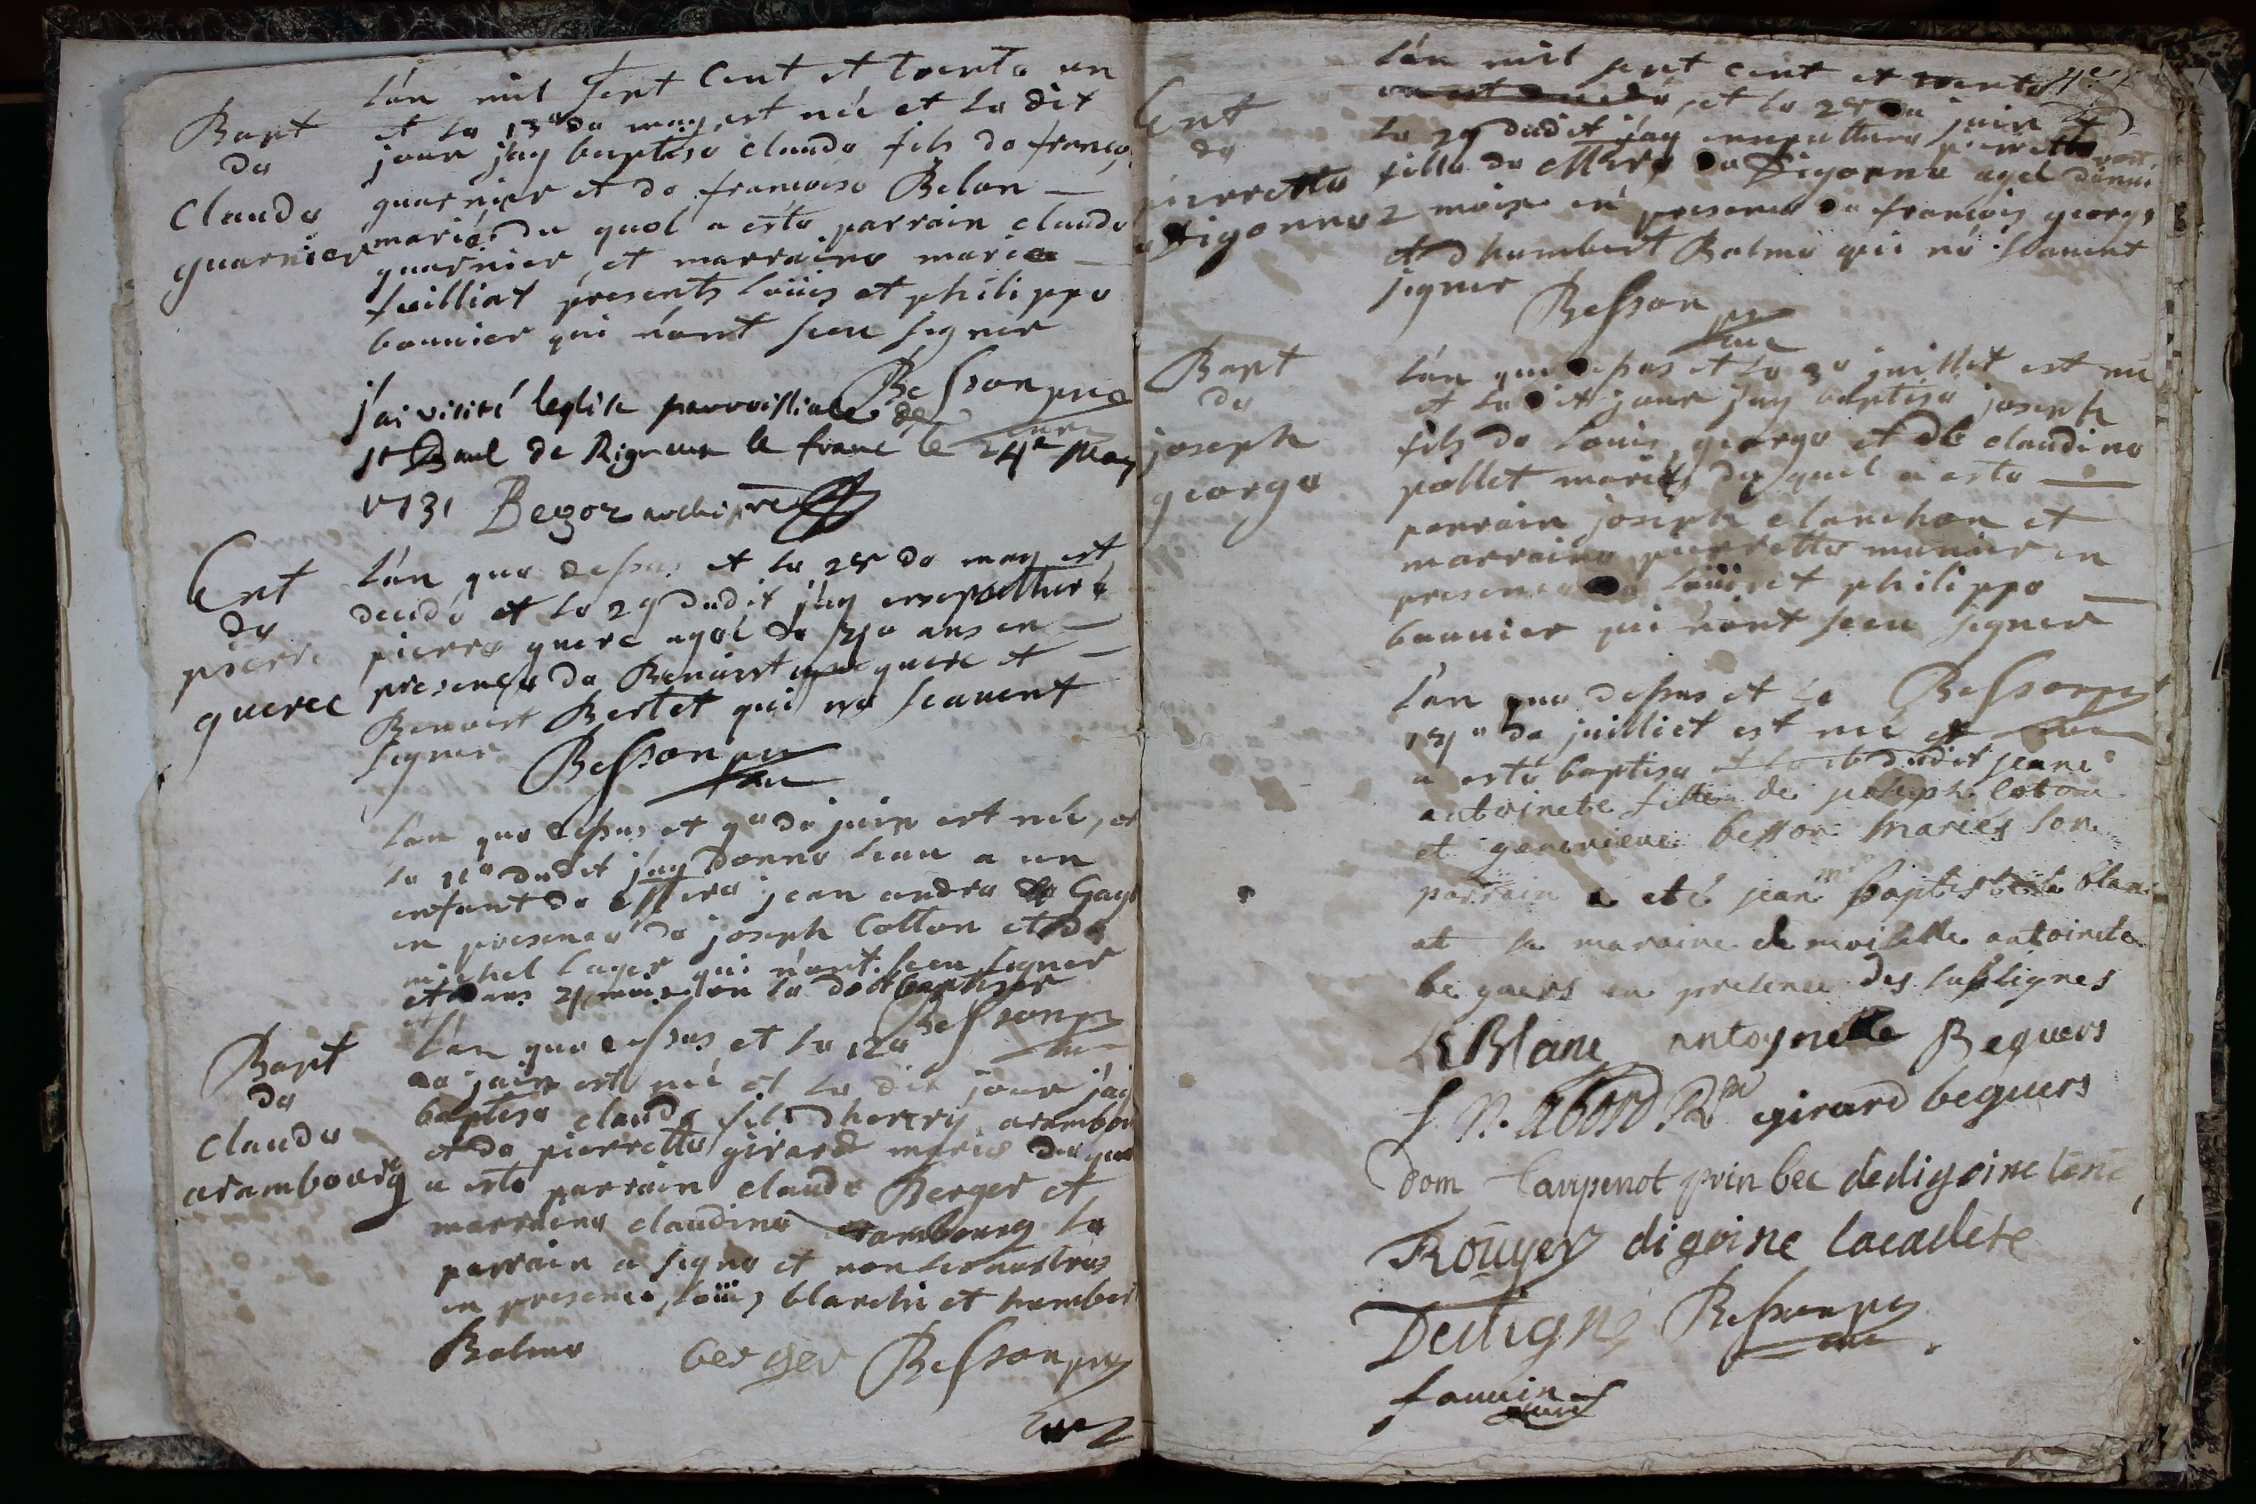 Bapt
de
Claude
guarnier
L'an mil sept cent et trente un
et le 13e de may est né et le dit
jour j'ay baptise claude fils de françois
guarnier et de françoise Belon
mariés du quel a esté parrain claude
guarnier, et marraine marie
presents loüis et philippe
bounier qui n'ont sceu signer
Besson pre
curé
j'ai visité leglise parroissiale de
st Paul de Rigneux le franc le 24e May
1731 Begoz archipre
Ent
de
pierre
querec
L'an que dessus et le 28 de may est
decedé et le 29 dudit j'ay ensepulturé
pierre quere agé de ans en
presence de Benoist quere et
Benoist Bertet qui ne scavent
signer Besson pre
curé
L'an que dessus et 9e de juin est né, et
le 11e dudit j'ay donné leau a un
enfant de jean andre
en presence de joseph Cotton et de
michel qui n'ont sceu signer
et dans mois on le doit baptiser
Besson pre
curé
Bapt
de
Claude
arambourg
L'an que dessus et le 12e
de juin est né et le dit jour j'ay
baptise claude fils d'henry arambourg
et de pierrette girard mariés du quel
a esté parrain claude Berger et
marraine claudine arambourg le
parrain a signé et non les autres
en presence, loüis blanchi et humbert
Balme berger Besson pre
curé
Ent
de
pierrette
digonne
L'an mil sept cent et trente
un est decedé, et le 28 de juin
le 29 dudit j'ay ensepulturé pierrette
fille de de Digonne agé
2 mois en presence de françois george
et d'humbert Balme qui ne scavent
signer Besson pre
curé
Bapt
de
joseph
george
L'an que dessus et le juillet est né
et le dit jour j'ay baptise joseph
fils de louis george et de claudine
pollet mariés du quel a esté
parrain joseph clanchon et
marraine pierrette munier en
presence de loüis et philippe
bounier qui n'ont sceu signer
Besson pre
curé
L'an que dessus et le
de juilliet est né et
a esté baptise et le dudit jeane
antoinete fille de joseph coton
et genevieve besson mariés son
parrain a eté jean baptiste le blanc
et la maraine demoiselle antoinete
beguers en presence des sussignes
LeBlanc antoynette Beguers
girard beguers
Dom Taupenot dedigoine
Rouyer digoine lacadete
Dedigne Besson pre
curé